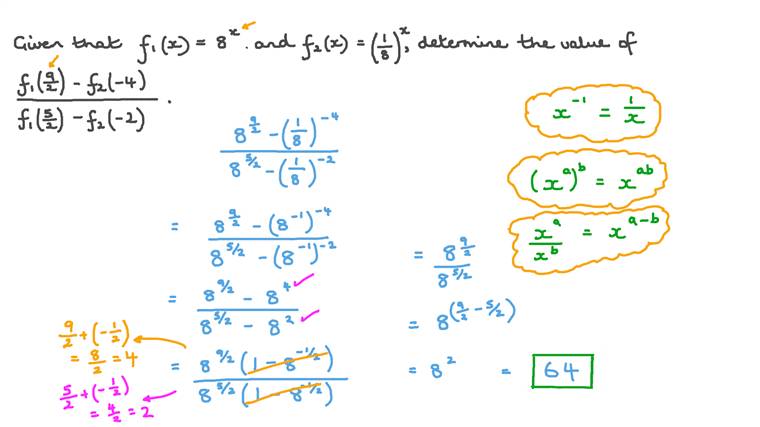 Given that f₁(x) = 8^x and f₂(x) = (1/8)^x, determine the value of
(f₁(9/2) − f₂(−4)) / (f₁(5/2) − f₂(−2)).
(8^(9/2) − (1/8)^(−4)) / (8^(5/2) − (1/8)^(−2))
= (8^(9/2) − (8^(−1))^(−4)) / (8^(5/2) − (8^(−1))^(−2))
= (8^(9/2) − 8^4) / (8^(5/2) − 8^2) ✓ ✓
= (8^(9/2) (1 − 8^(−1/2))) / (8^(5/2) (1 − 8^(−1/2)))
9/2 + (−1/2)
= 8/2 = 4
5/2 + (−1/2)
= 4/2 = 2
= 8^(9/2) / 8^(5/2)
= 8^(9/2 − 5/2)
= 8^2 = 64
x^(−1) = 1/x
(x^a)^b = x^(ab)
x^a / x^b = x^(a−b)